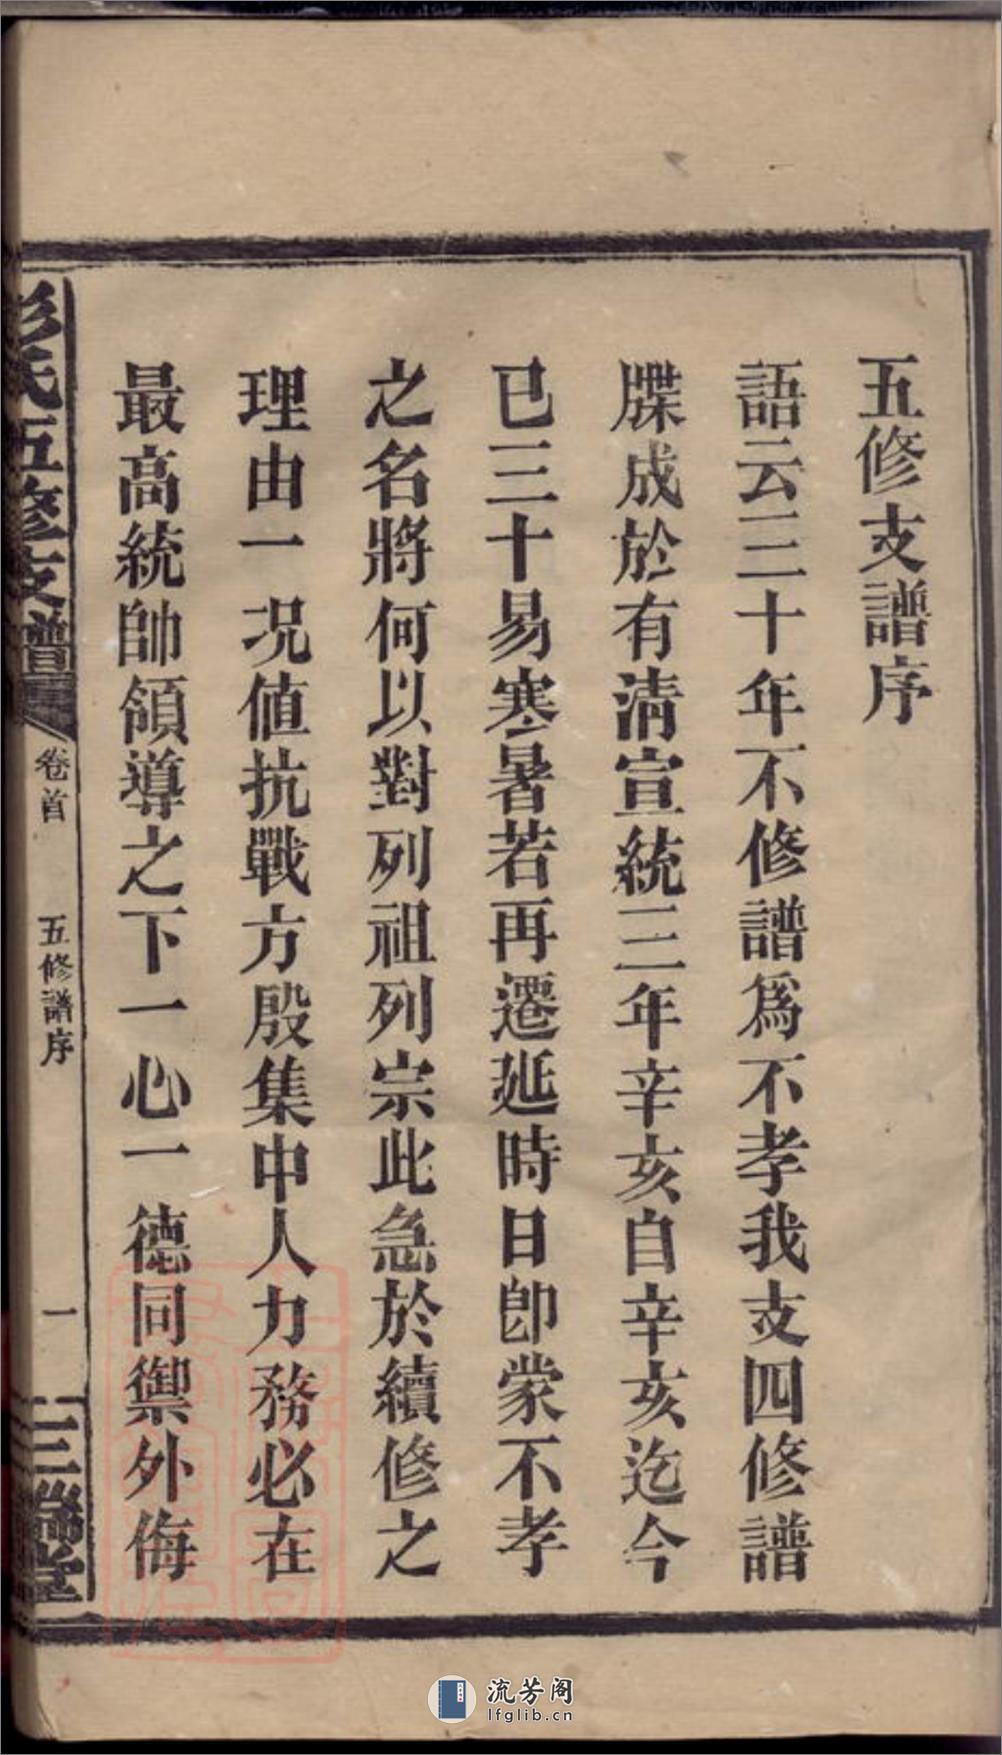 五修支譜序
語云三十年不修譜爲不孝我支四修譜
牒成於有清宣統三年辛亥自辛亥迄今
已三十易寒暑若再遷延時日卽蒙不孝
之名將何以對列祖列宗此急於續修之
理由一况值抗戰方殷集中人力務必在
最高統帥領導之下一心一德同禦外侮
彭氏五修支譜
卷首
五修譜序
一
三瑞堂
流芳阁
lfglib.cn